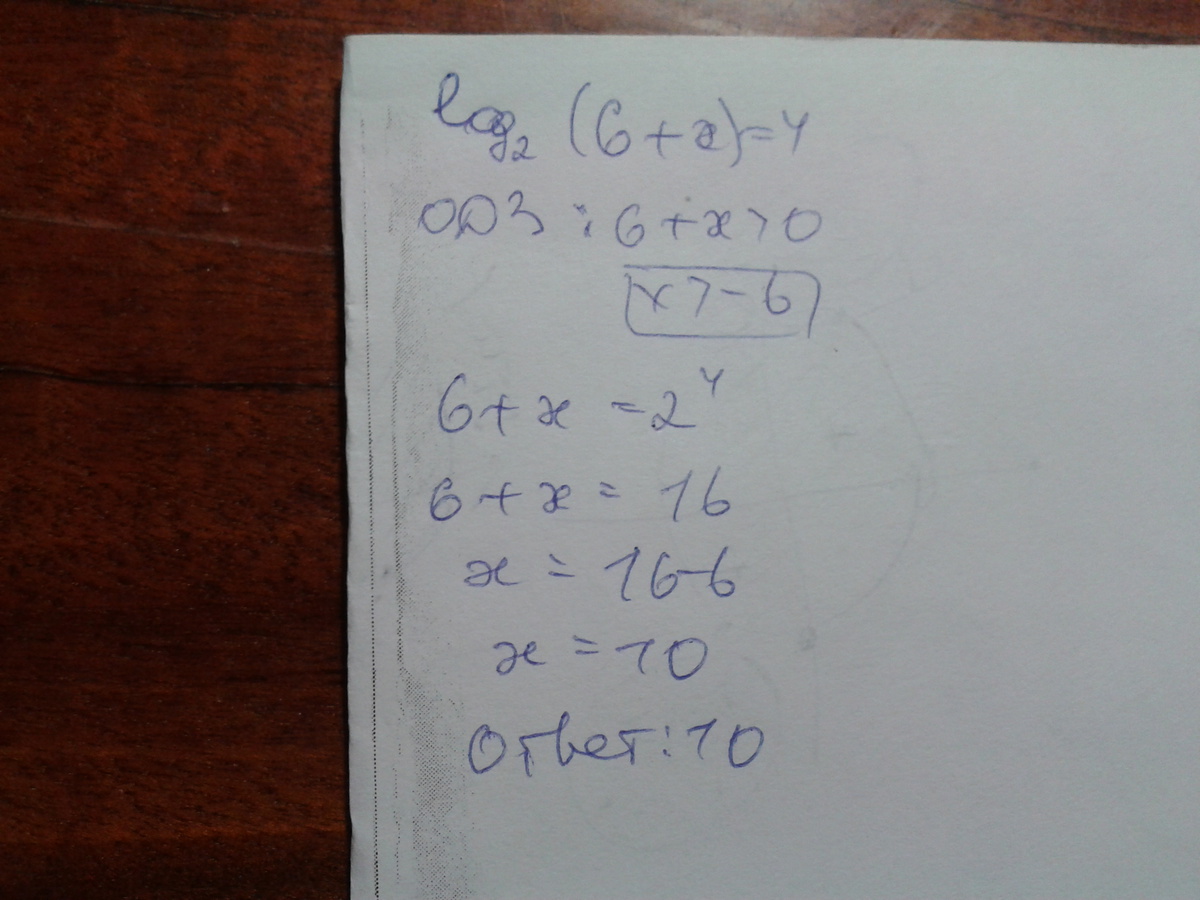 log₂ (6+x)=4
ОДЗ : 6+x>0
x>-6
6+x =2⁴
6+x= 16
x = 16-6
x = 10
Ответ: 10